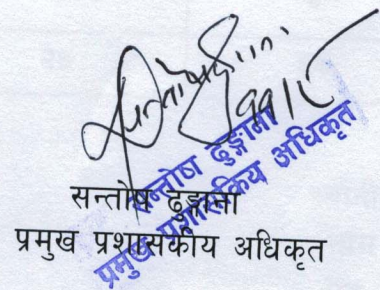 सन्तोष ढुङ्गाना
प्रमुख प्रशासकीय अधिकृत
सन्तोष ढुङ्गाना
प्रमुख प्रशासकीय अधिकृत